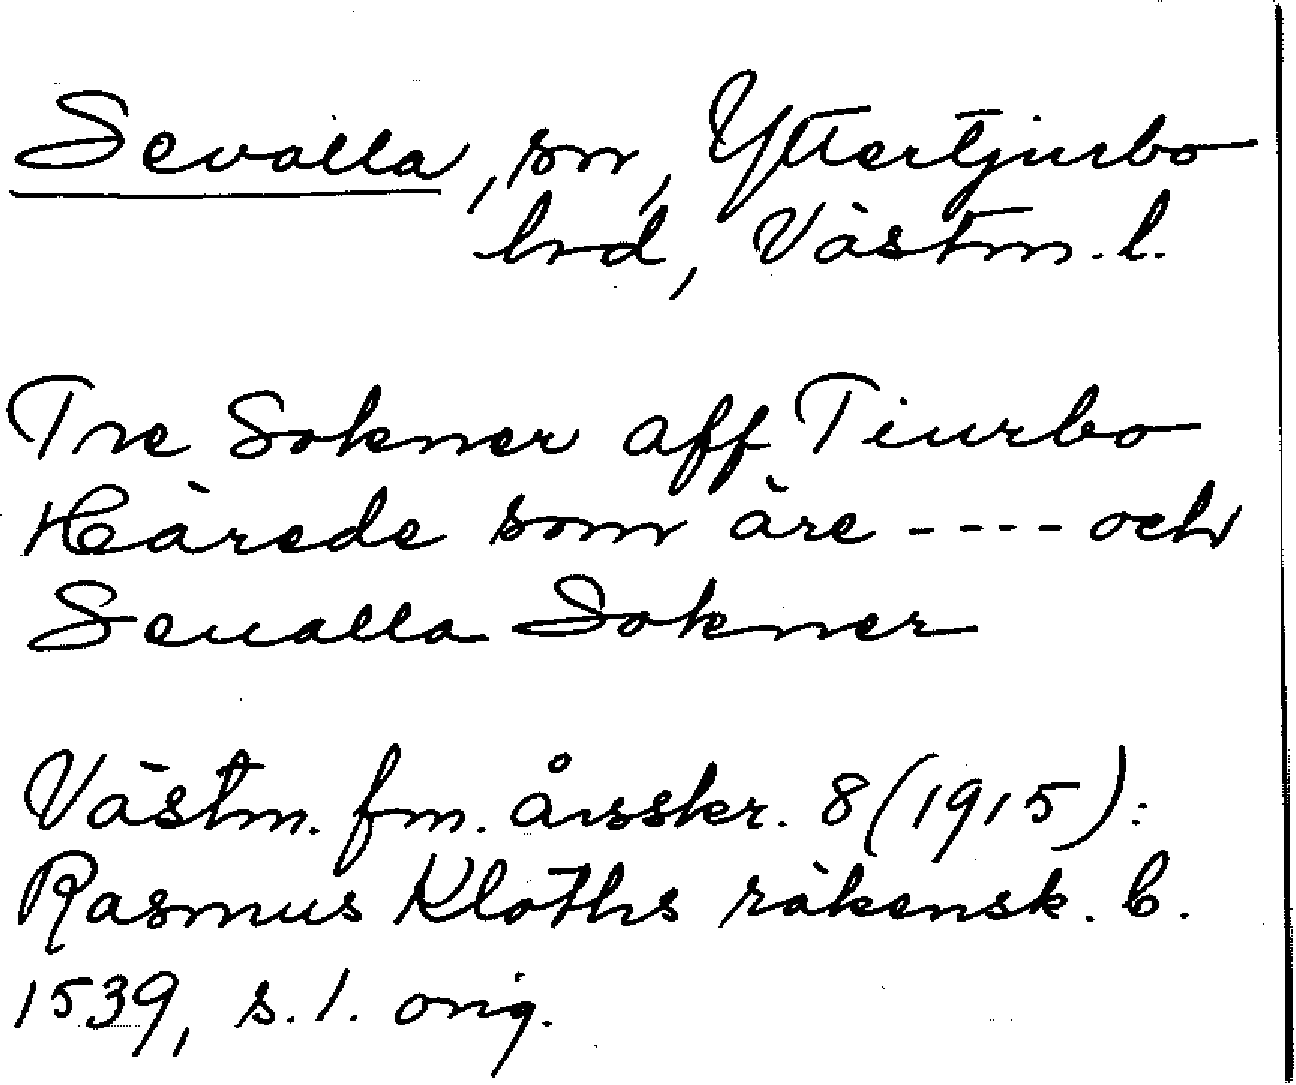 Sevalla, sn, Yttertjurbo
hrd, Västm. l.
Tre Sokner aff Tiurbo
Härede som äre ---- och
Seualla Sokner
Västm. fm. årsskr. 8 (1915):
Rasmus Kloths räkensk. b.
1539, s. 1. orig.